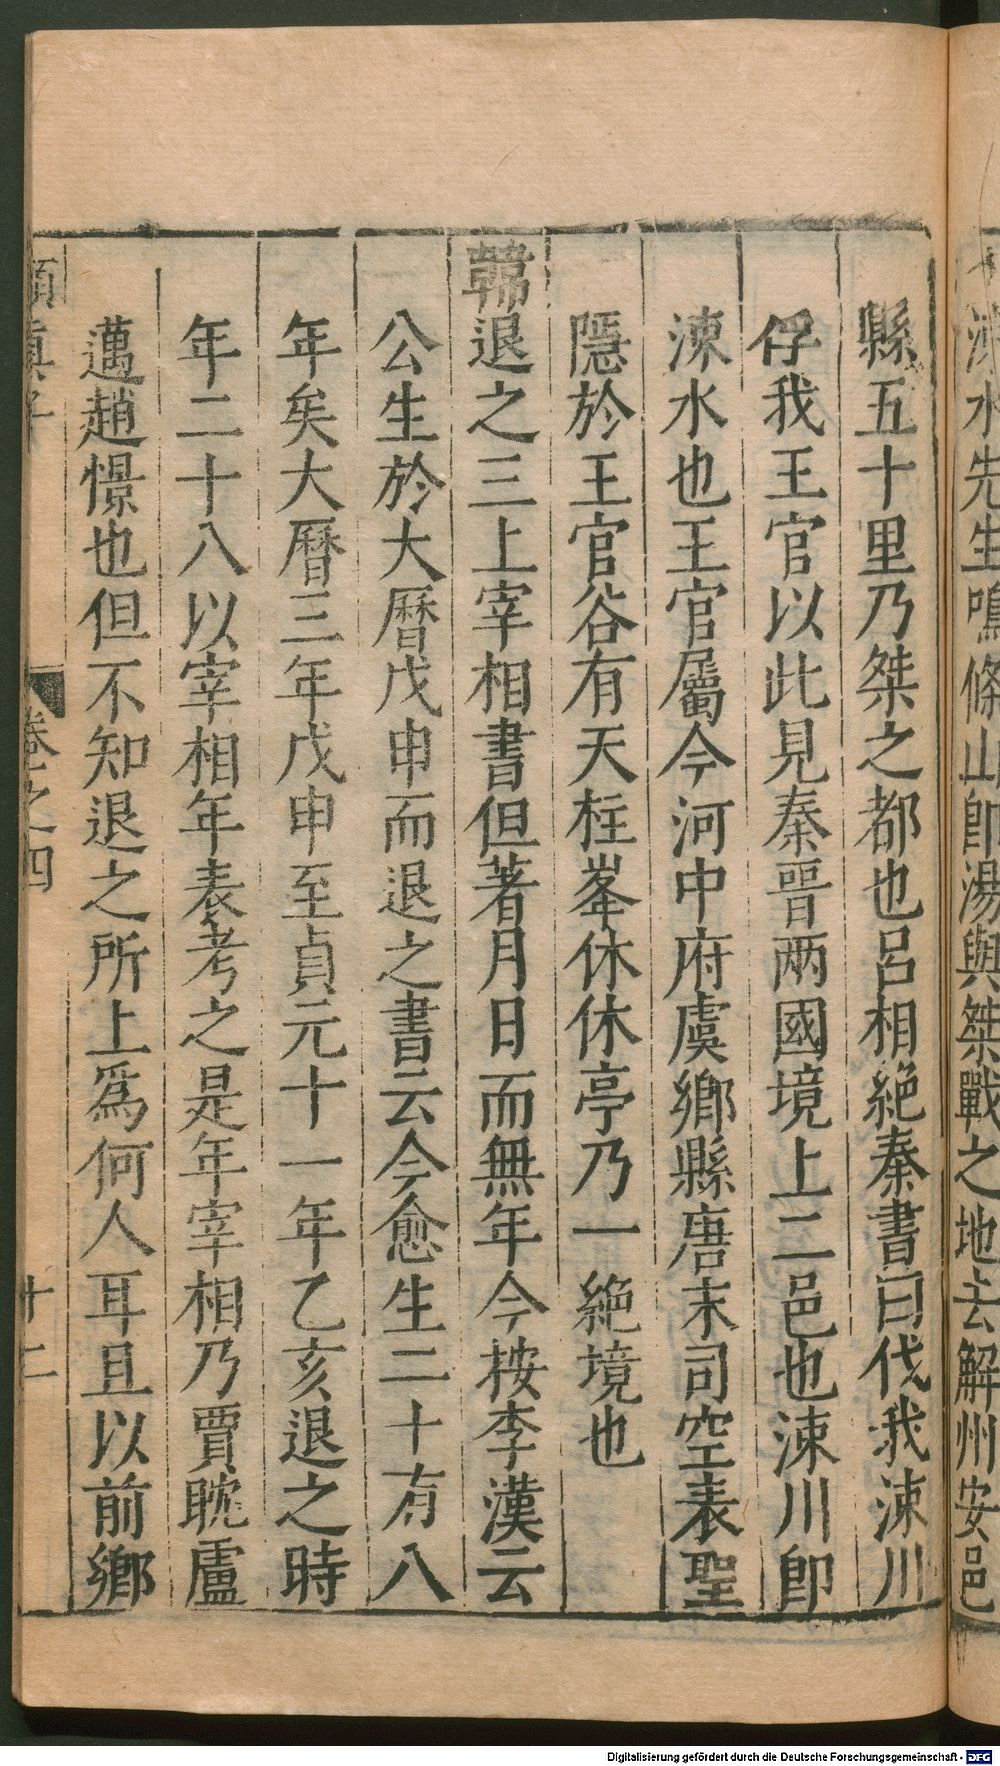 涑水先生鳴條山卽湯與桀戰之地去解州安邑
縣五十里乃桀之都也呂相絕秦書曰伐我涑川
俘我王官以此見秦晋兩國境上二邑也涑川卽
涑水也王官屬今河中府虞鄉縣唐末司空表聖
隱於王官谷有天柱峯休休亭乃一絕境也
韓退之三上宰相書但著月日而無年今按李漢云
公生於大曆戊申而退之書云今愈生二十有八
年矣大曆三年戊申至貞元十一年乙亥退之時
年二十八以宰相年表考之是年宰相乃賈眈盧
邁趙憬也但不知退之所上爲何人耳且以前鄉
真子 卷之四 十二
Digitalisierung gefördert durch die Deutsche Forschungsgemeinschaft - DFG